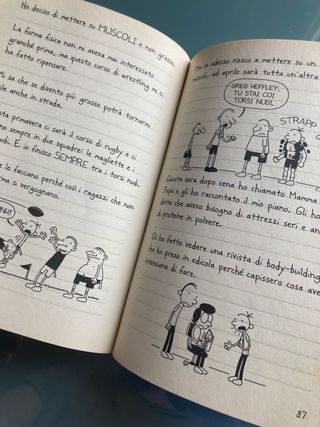 Ho deciso di mettere su MUSCOLI e non grasso.
La forma fisica non mi aveva mai interessato
granché prima, ma questo corso di wrestling m ci
ha fatto ripensare.
sa che se divento più grosso potrà tornarmi
anche in strada.
primavera ci sarà il corso di rugby e ci
sempre in due squadre: le magliette e i
nudi. E io finisco SEMPRE tra i torsi nudi.
lo facciano perché così i ragazzi che non
si vergognano.
Ma se adesso riesco a mettere su un
muscoli, ad aprile sarà tutta un'altra
GREG HEFFLEY,
TU STAI COI
TORSI NUDI.
STRAPP
Questa sera dopo cena ho chiamato Mamma
Papà e gli ho raccontato il mio piano. Gli ho
detto che avevo bisogno di attrezzi seri e an
di proteine in polvere.
Gli ho fatto vedere una rivista di body-building
che ho preso in edicola perché capissero cosa ave
intenzione di fare.
87